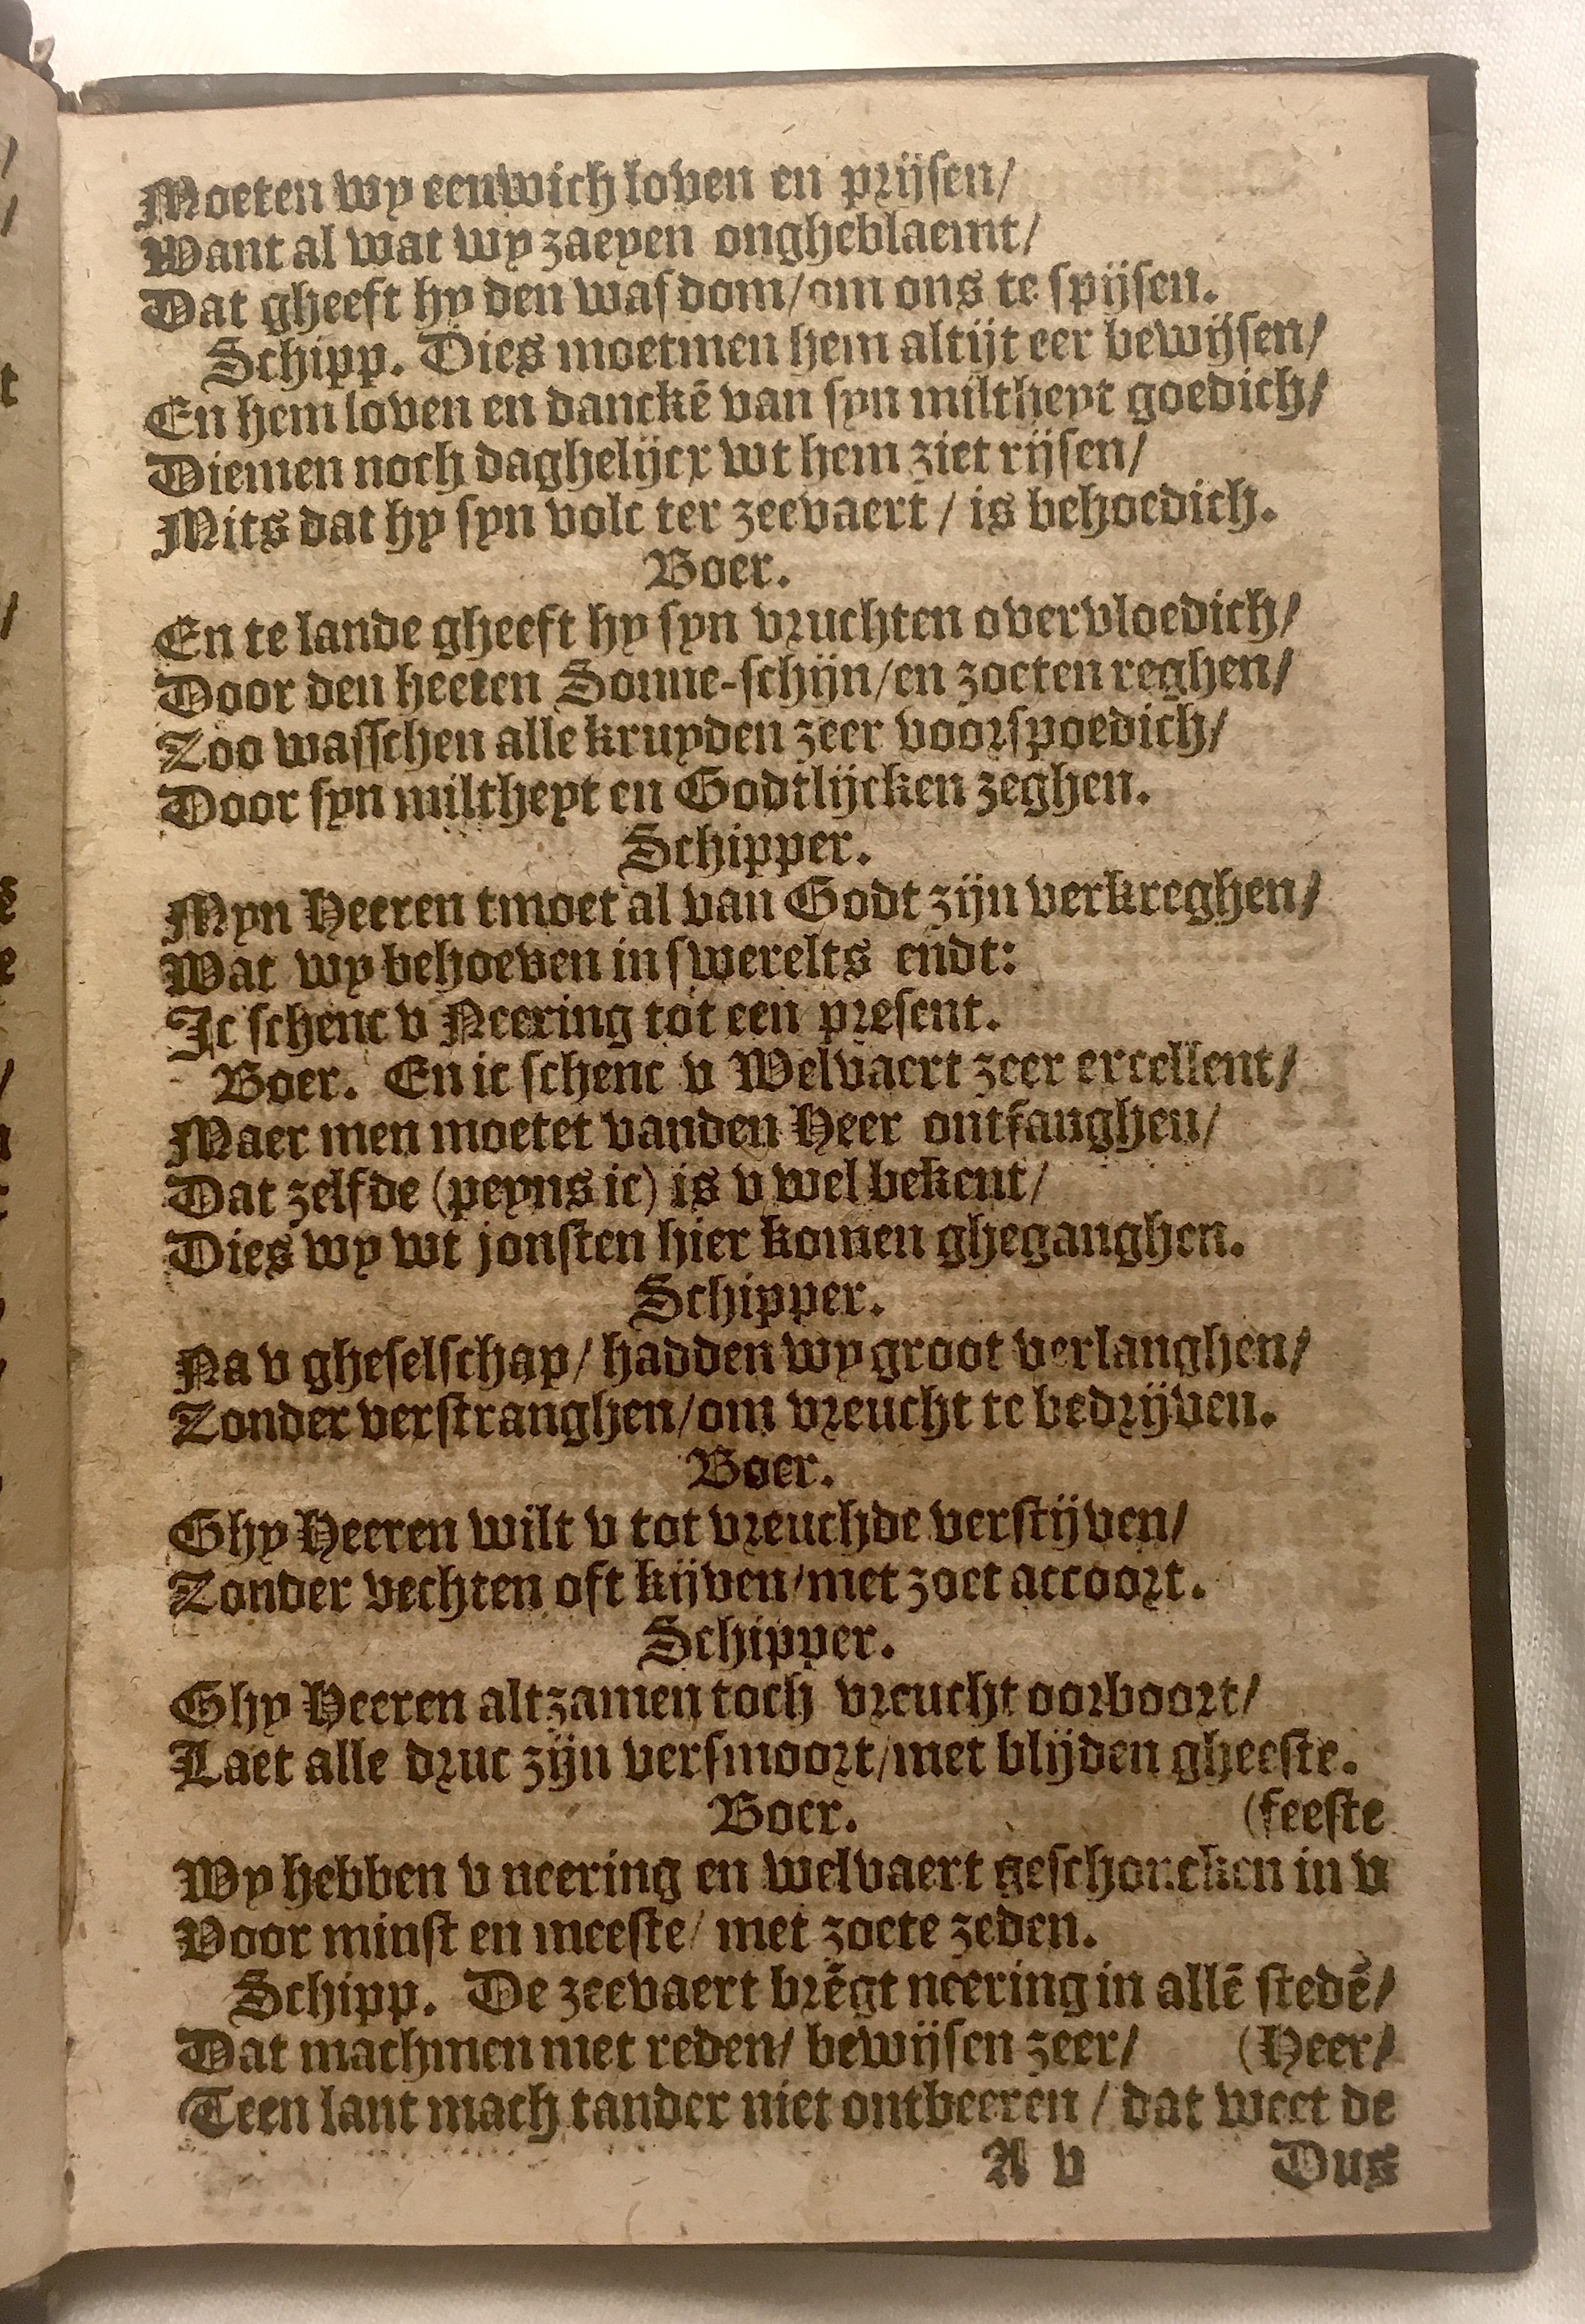 Moeten wy eeuwich loven en prijsen/
Want al wat wy zaeyen ongheblaemt/
Dat gheeft hy den wasdom/om ons te spijsen.
Schipp. Dies moetmen hem altijt eer bewijsen/
En hem loven en danckē van syn miltheyt goedich/
Diemen noch daghelijcx wt hem ziet rijsen/
Mits dat hy syn volc ter zeevaert / is behoedich.
Boer.
En te lande gheeft hy syn vruchten overvloedich/
Door den heeten Sonne-schijn/en zoeten reghen/
Zoo wasschen alle kruyden zeer voorspoedich/
Door syn miltheyt en Godtlijcken zeghen.
Schipper.
Myn Heeren tmoet al van Godt zijn verkreghen/
Wat wy behoeven in swerelts endt:
Ic schenc v Neering tot een present.
Boer. En ic schenc v Welvaert zeer excellent/
Maer men moetet vanden Heer ontfanghen/
Dat zelfde (peyns ic) is v wel bekent/
Dies wy wt jonsten hier komen gheganghen.
Schipper.
Na v gheselschap/ hadden wy groot verlanghen/
Zonder verstranghen/om vreucht te bedrijven.
Boer.
Ghy Heeren wilt v tot vreuchde verstijven/
Zonder vechten oft kijven/met zoet accoort.
Schipper.
Ghy Heeren altzamen toch vreucht oorboort/
Laet alle druc zijn versmoort/met blijden gheeste.
Boer. (feeste
Wy hebben v neering en welvaert geschoncken in v
Voor minst en meeste/ met zoete zeden.
Schipp. De zeevaert brēgt neering in allē stedē/
Dat machmen met reden/ bewijsen zeer/ (Heer/
Teen lant mach tander niet ontbeeren / dat weet de
A v Dus